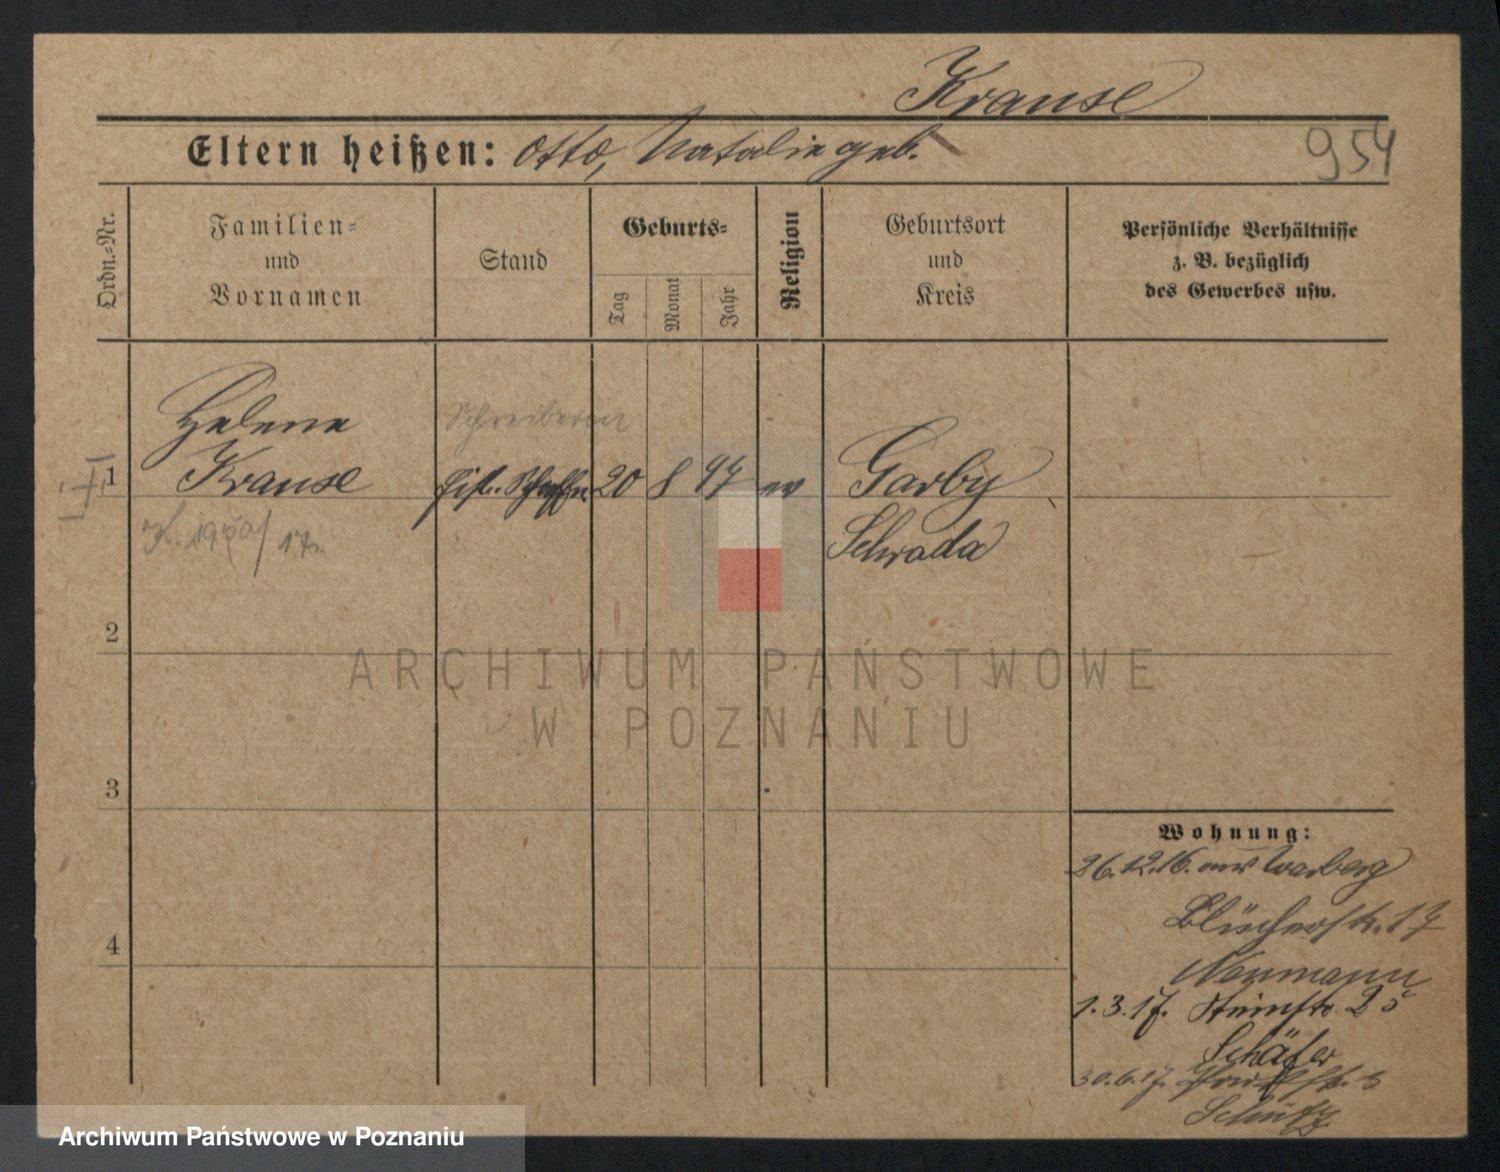 Krause
Eltern heißen: Otto, Natalie geb.
954
Ordn.=Nr.
Familien=
und
Vornamen
Stand
Geburts=
Tag
Monat
Jahr
Religion
Geburtsort
und
Kreis
Persönliche Verhältnisse
z. B. bezüglich
des Gewerbes usw.
Schreiberin
Helene
1 Krause 20 8 97 ev Garby
Schrada
2
3
4
ARCHIWUM PAŃSTWOWE
W POZNANIU
Wohnung:
26.12.16. aus Warberg
Blücherstr. 17
Normann
1.3.17. Steinstr. 25
Schäfer
30.6.17.
Schütz
Archiwum Państwowe w Poznaniu